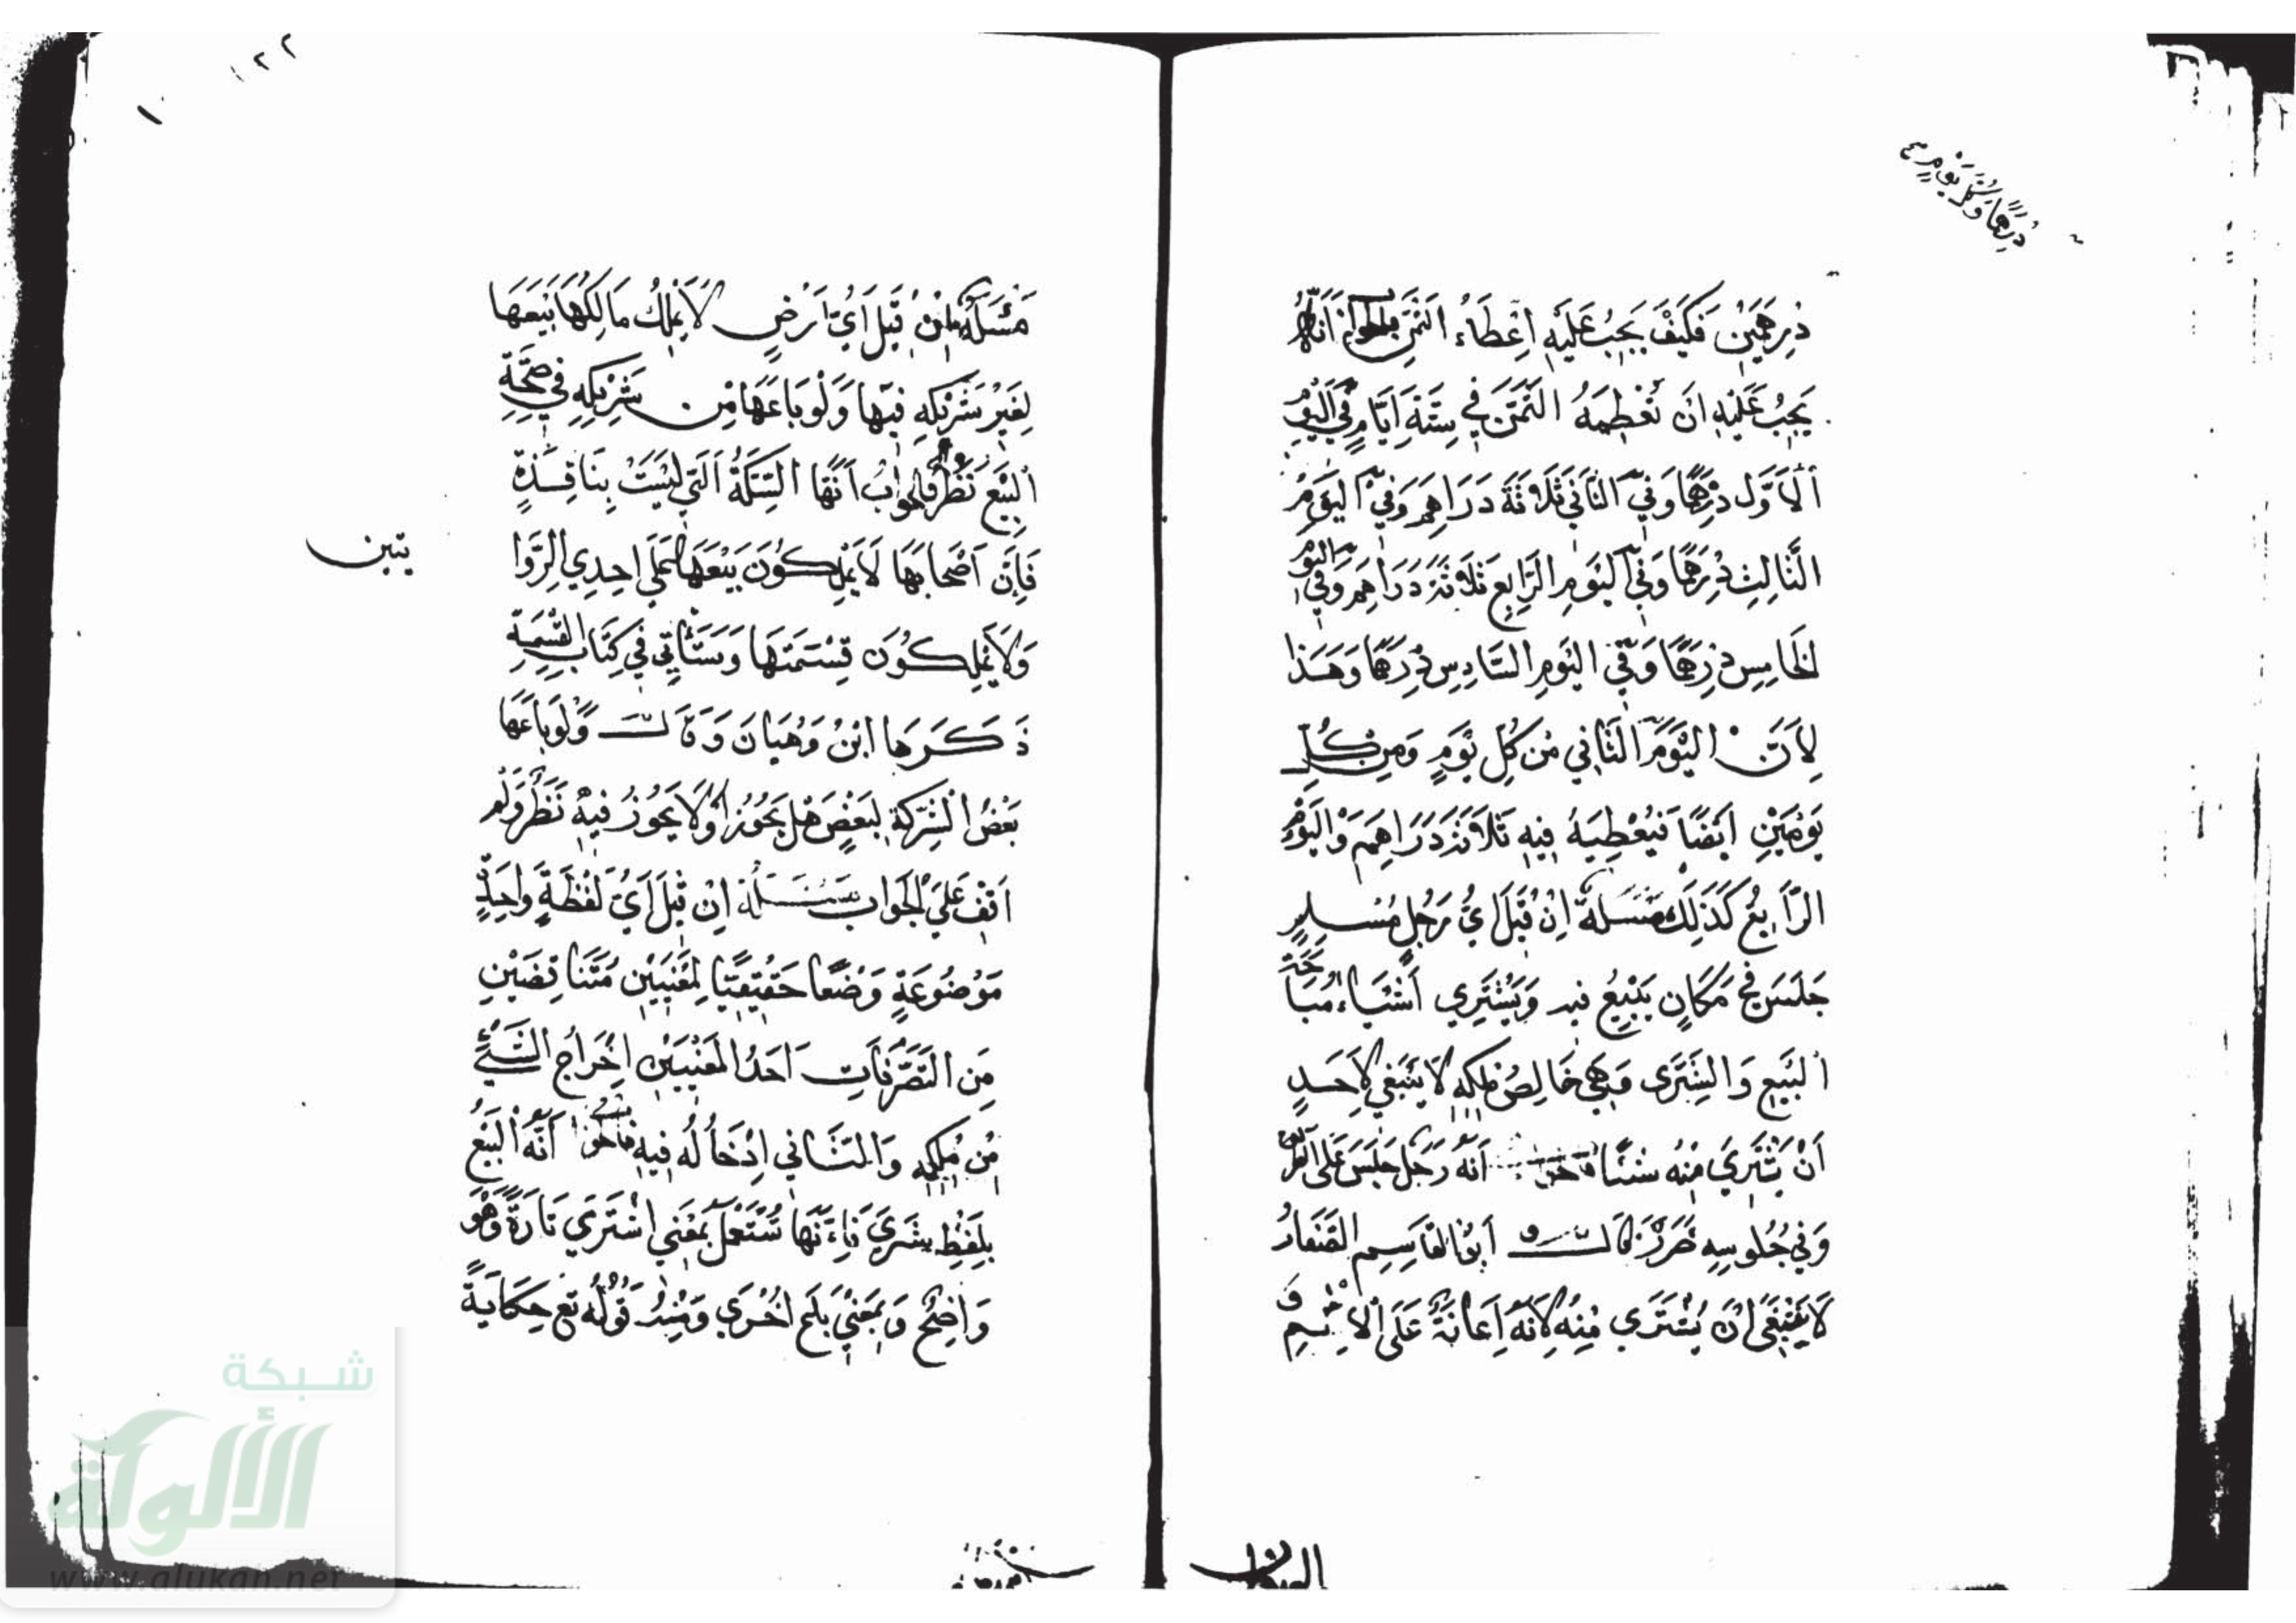 درهمًا وكل يومٍ
دِرهمين فكيف يجب عليه إعطاء الثمن فالجواب أنه
يجب عليه ان تعطيه الثمن في ستة ايام في اليوم
الأول درهمًا وفي الثاني ثلاثة دراهم وفي اليوم
الثالث درهمًا وفي اليوم الرابع ثلاثة دراهم وفي اليوم
الخامس درهمًا وفي اليوم السادس درهمًا وهذا
لأن اليوم الثاني من كل يوم ومن كل
يومين ايضًا فيعطيه فيه ثلاثة دراهم واليوم
الرابع كذلك مسئلة إن قيل اي رجل مسلم
جلس في مكان يبيع فيه ويشتري أشياء مباحة
البيع والشرى وهي خالص ملكه لا ينبغي لأحد
أن يشتري منه شيئًا أنه رجل جلس على الطريق
وفي جلوسه ضرر قال أبو القاسم الصفار
لا ينبغي ان يشتري منه لأنه إعانة على الإثم و
١٢٢
مسئلة إن قيل أي أرض لا يملك مالكها بيعها
لغير شريكه فيها ولو باعها من شريكه في صحة
البيع نظر فالجواب أنها السكة التي ليست بنافذة
فإن أصحابها لا يملكون بيعها على احدي الروا
يتين
ولا يملكون قسمتها وستأتي في كتاب القسمة
ذكرها ابن وهبان وقال ولو باعها
بعض الشركة لبعض هل يجوز أو لا يجوز فيه نظر ولم
اقف على الجواب مسئلة إن قيل أي لفظة واحدة
موضوعة وضعًا حقيقيًا لمعنيين متناقضين
من التصرفات أحد المعنيين إخراج الشيء
من ملكه والثاني إدخاله فيه أنه البيع
بلفظ يشري فإنها تستعمل بمعنى اشترى تارة وهو
واضح وبمعنى باع اخرى ومنه قوله تع حكاية
شبكة
الألوكة
www.alukah.net